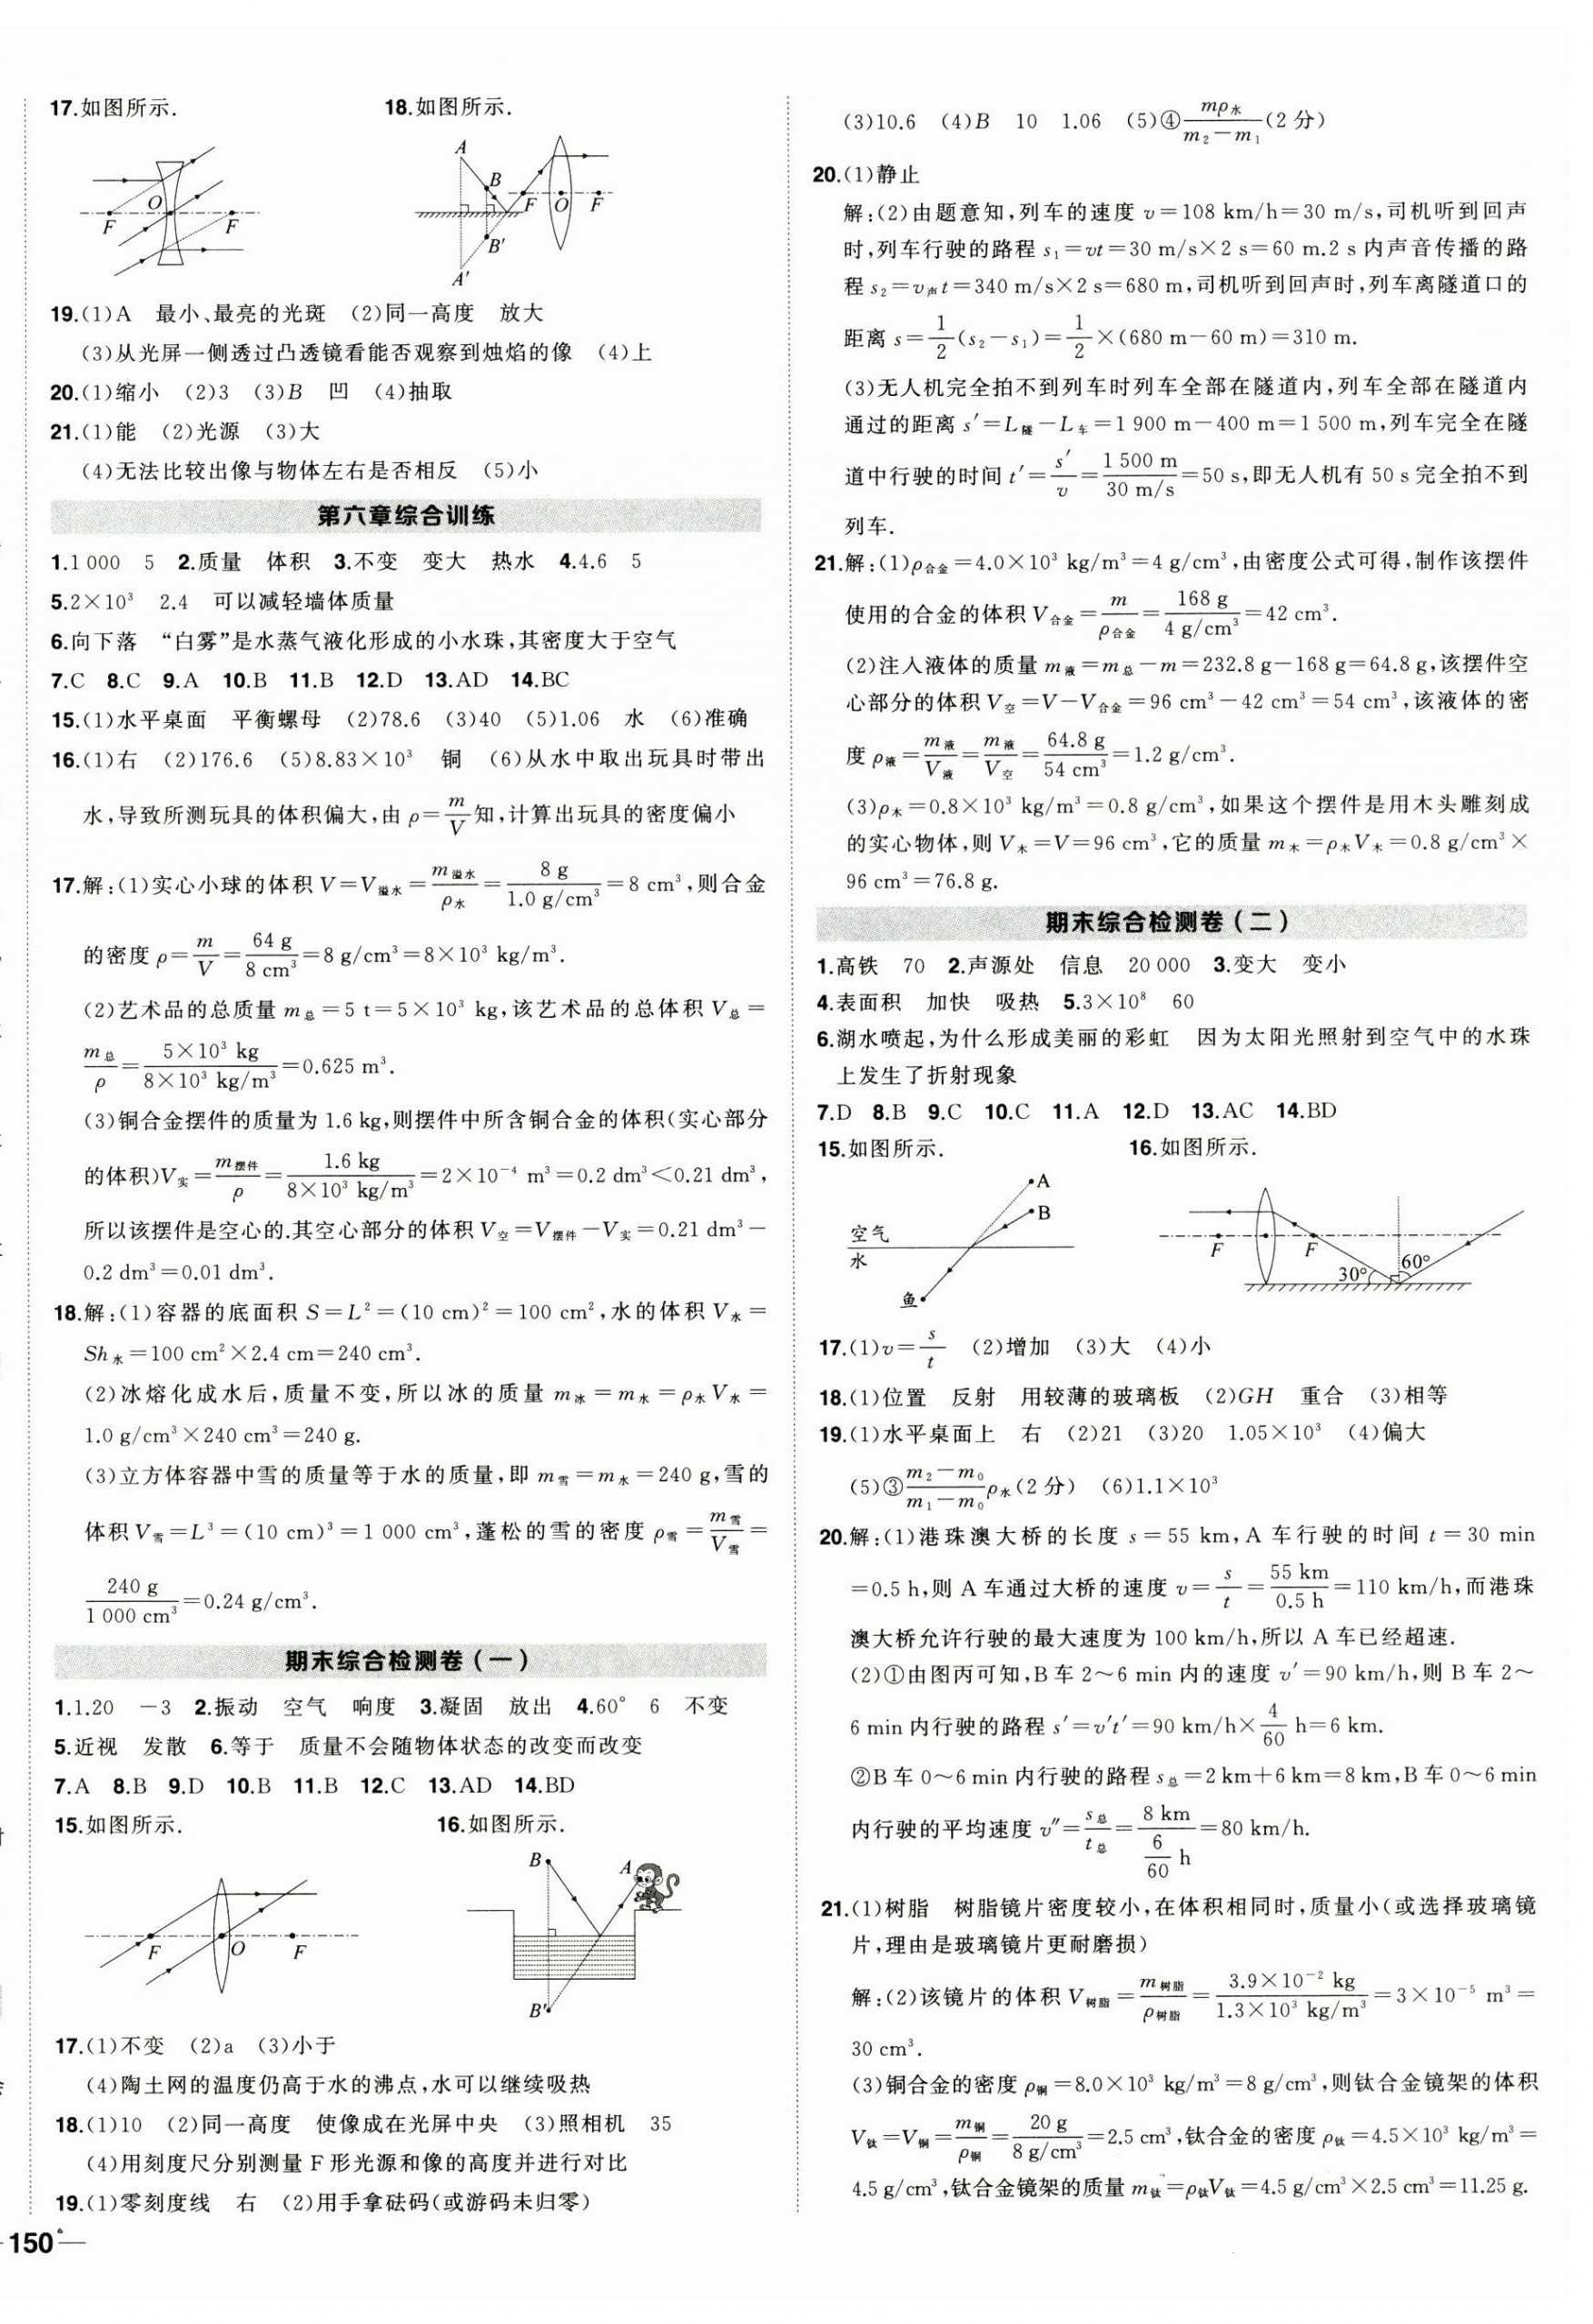 17.如图所示.
18.如图所示.
O F F
A B F O F B′ A′
19.(1)A 最小、最亮的光斑 (2)同一高度 放大
(3)从光屏一侧透过凸透镜看能否观察到烛焰的像 (4)上
20.(1)缩小 (2)3 (3)B 凹 (4)抽取
21.(1)能 (2)光源 (3)大
(4)无法比较出像与物体左右是否相反 (5)小
第六章综合训练
1.1 000 5 2.质量 体积 3.不变 变大 热水 4.4.6 5
5.2×10³ 2.4 可以减轻墙体质量
6.向下落 “白雾”是水蒸气液化形成的小水珠,其密度大于空气
7.C 8.C 9.A 10.B 11.B 12.D 13.AD 14.BC
15.(1)水平桌面 平衡螺母 (2)78.6 (3)40 (5)1.06 水 (6)准确
16.(1)右 (2)176.6 (5)8.83×10³ 铜 (6)从水中取出玩具时带出
水,导致所测玩具的体积偏大,由 ρ=m/V知,计算出玩具的密度偏小
17.解:(1)实心小球的体积 V=V溢水=m溢水/ρ水=8 g/1.0 g/cm³=8 cm³,则合金
的密度 ρ=m/V=64 g/8 cm³=8 g/cm³=8×10³ kg/m³.
(2)艺术品的总质量 m总=5 t=5×10³ kg,该艺术品的总体积 V总=
m总/ρ=5×10³ kg/8×10³ kg/m³=0.625 m³.
(3)铜合金摆件的质量为 1.6 kg,则摆件中所含铜合金的体积(实心部分
的体积)V实=m摆件/ρ=1.6 kg/8×10³ kg/m³=2×10⁻⁴ m³=0.2 dm³<0.21 dm³,
所以该摆件是空心的.其空心部分的体积 V空=V摆件-V实=0.21 dm³-
0.2 dm³=0.01 dm³.
18.解:(1)容器的底面积 S=L²=(10 cm)²=100 cm²,水的体积 V水=
Sh水=100 cm²×2.4 cm=240 cm³.
(2)冰熔化成水后,质量不变,所以冰的质量 m冰=m水=ρ水V水=
1.0 g/cm³×240 cm³=240 g.
(3)立方体容器中雪的质量等于水的质量,即 m雪=m水=240 g,雪的
体积 V雪=L³=(10 cm)³=1 000 cm³,蓬松的雪的密度 ρ雪=m雪/V雪=
240 g/1 000 cm³=0.24 g/cm³.
期末综合检测卷(一)
1.1.20 -3 2.振动 空气 响度 3.凝固 放出 4.60° 6 不变
5.近视 发散 6.等于 质量不会随物体状态的改变而改变
7.A 8.B 9.D 10.B 11.B 12.C 13.AD 14.BD
15.如图所示.
16.如图所示.
F O F
B A B′
17.(1)不变 (2)a (3)小于
(4)陶土网的温度仍高于水的沸点,水可以继续吸热
18.(1)10 (2)同一高度 使像成在光屏中央 (3)照相机 35
(4)用刻度尺分别测量 F 形光源和像的高度并进行对比
19.(1)零刻度线 右 (2)用手拿砝码(或游码未归零)
150
(3)10.6 (4)B 10 1.06 (5)④mρ水/m₂-m₁(2分)
20.(1)静止
解:(2)由题意知,列车的速度 v=108 km/h=30 m/s,司机听到回声
时,列车行驶的路程 s₁=vt=30 m/s×2 s=60 m.2 s 内声音传播的路
程 s₂=v声t=340 m/s×2 s=680 m,司机听到回声时,列车离隧道口的
距离 s=1/2(s₂-s₁)=1/2×(680 m-60 m)=310 m.
(3)无人机完全拍不到列车时列车全部在隧道内,列车全部在隧道内
通过的距离 s′=L隧-L车=1 900 m-400 m=1 500 m,列车完全在隧
道中行驶的时间 t′=s′/v=1 500 m/30 m/s=50 s,即无人机有 50 s 完全拍不到
列车.
21.解:(1)ρ合金=4.0×10³ kg/m³=4 g/cm³,由密度公式可得,制作该摆件
使用的合金的体积 V合金=m/ρ合金=168 g/4 g/cm³=42 cm³.
(2)注入液体的质量 m液=m总-m=232.8 g-168 g=64.8 g,该摆件空
心部分的体积 V空=V-V合金=96 cm³-42 cm³=54 cm³,该液体的密
度 ρ液=m液/V液=m液/V空=64.8 g/54 cm³=1.2 g/cm³.
(3)ρ木=0.8×10³ kg/m³=0.8 g/cm³,如果这个摆件是用木头雕刻成
的实心物体,则 V木=V=96 cm³,它的质量 m木=ρ木V木=0.8 g/cm³×
96 cm³=76.8 g.
期末综合检测卷(二)
1.高铁 70 2.声源处 信息 20 000 3.变大 变小
4.表面积 加快 吸热 5.3×10⁸ 60
6.湖水喷起,为什么形成美丽的彩虹 因为太阳光照射到空气中的水珠
上发生了折射现象
7.D 8.B 9.C 10.C 11.A 12.D 13.AC 14.BD
15.如图所示.
16.如图所示.
A B 空气 水 鱼
F F 30° 60°
17.(1)v=s/t (2)增加 (3)大 (4)小
18.(1)位置 反射 用较薄的玻璃板 (2)GH 重合 (3)相等
19.(1)水平桌面上 右 (2)21 (3)20 1.05×10³ (4)偏大
(5)③m₂-m₀/m₁-m₀ρ水(2分) (6)1.1×10³
20.解:(1)港珠澳大桥的长度 s=55 km,A 车行驶的时间 t=30 min
=0.5 h,则 A 车通过大桥的速度 v=s/t=55 km/0.5 h=110 km/h,而港珠
澳大桥允许行驶的最大速度为 100 km/h,所以 A 车已经超速.
(2)①由图丙可知,B 车 2~6 min 内的速度 v′=90 km/h,则 B 车 2~
6 min 内行驶的路程 s′=v′t′=90 km/h×4/60 h=6 km.
②B 车 0~6 min 内行驶的路程 s总=2 km+6 km=8 km,B 车 0~6 min
内行驶的平均速度 v″=s总/t总=8 km/6/60 h=80 km/h.
21.(1)树脂 树脂镜片密度较小,在体积相同时,质量小(或选择玻璃镜
片,理由是玻璃镜片更耐磨损)
解:(2)该镜片的体积 V树脂=m树脂/ρ树脂=3.9×10⁻² kg/1.3×10³ kg/m³=3×10⁻⁵ m³=
30 cm³.
(3)铜合金的密度 ρ铜=8.0×10³ kg/m³=8 g/cm³,则钛合金镜架的体积
V钛=V铜=m铜/ρ铜=20 g/8 g/cm³=2.5 cm³,钛合金的密度 ρ钛=4.5×10³ kg/m³=
4.5 g/cm³,钛合金镜架的质量 m钛=ρ钛V钛=4.5 g/cm³×2.5 cm³=11.25 g.